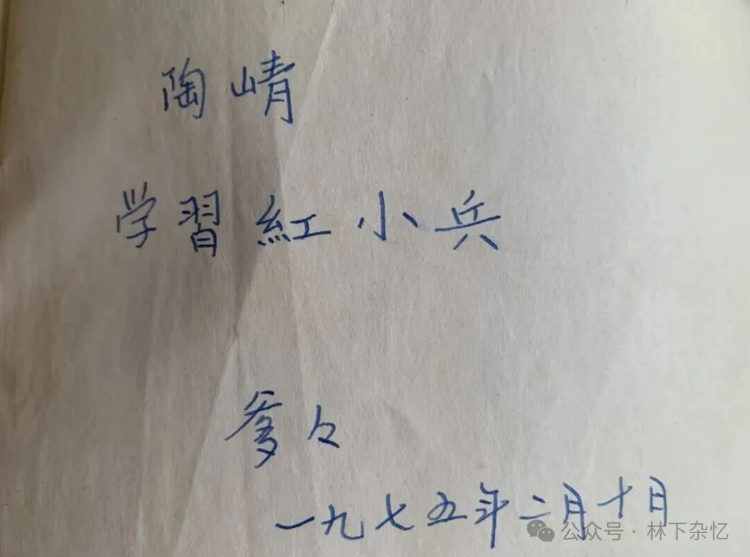 陶崝
学習紅小兵
爹々
一九七五年二月十日
公众号·林下杂忆